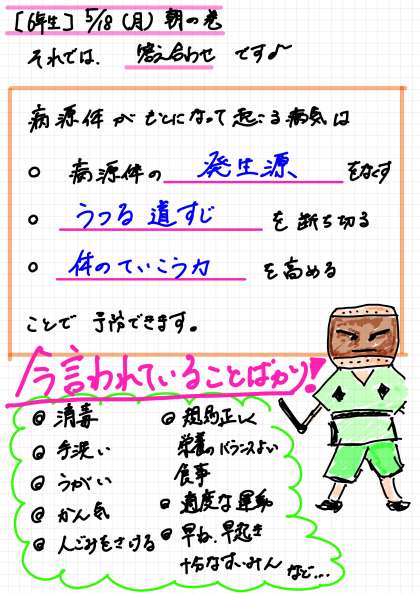 [6年生] 5/18 (月) 朝の巻
それでは、答え合わせ です♪
病源体がもとになって起こる病気は
○ 病源体の 発生源 をなくす
○ うつる道すじ を断ち切る
○ 体のていこう力 を高める
ことで 予防できます。
今言われていることばかり!
◎ 消毒
◎ 手洗い
◎ うがい
◎ かん気
◎ 人ごみをさける
◎ 規則正しく
栄養のバランスよい
食事
◎ 適度な運動
◎ 早ね、早起き
十分なすいみん
など…